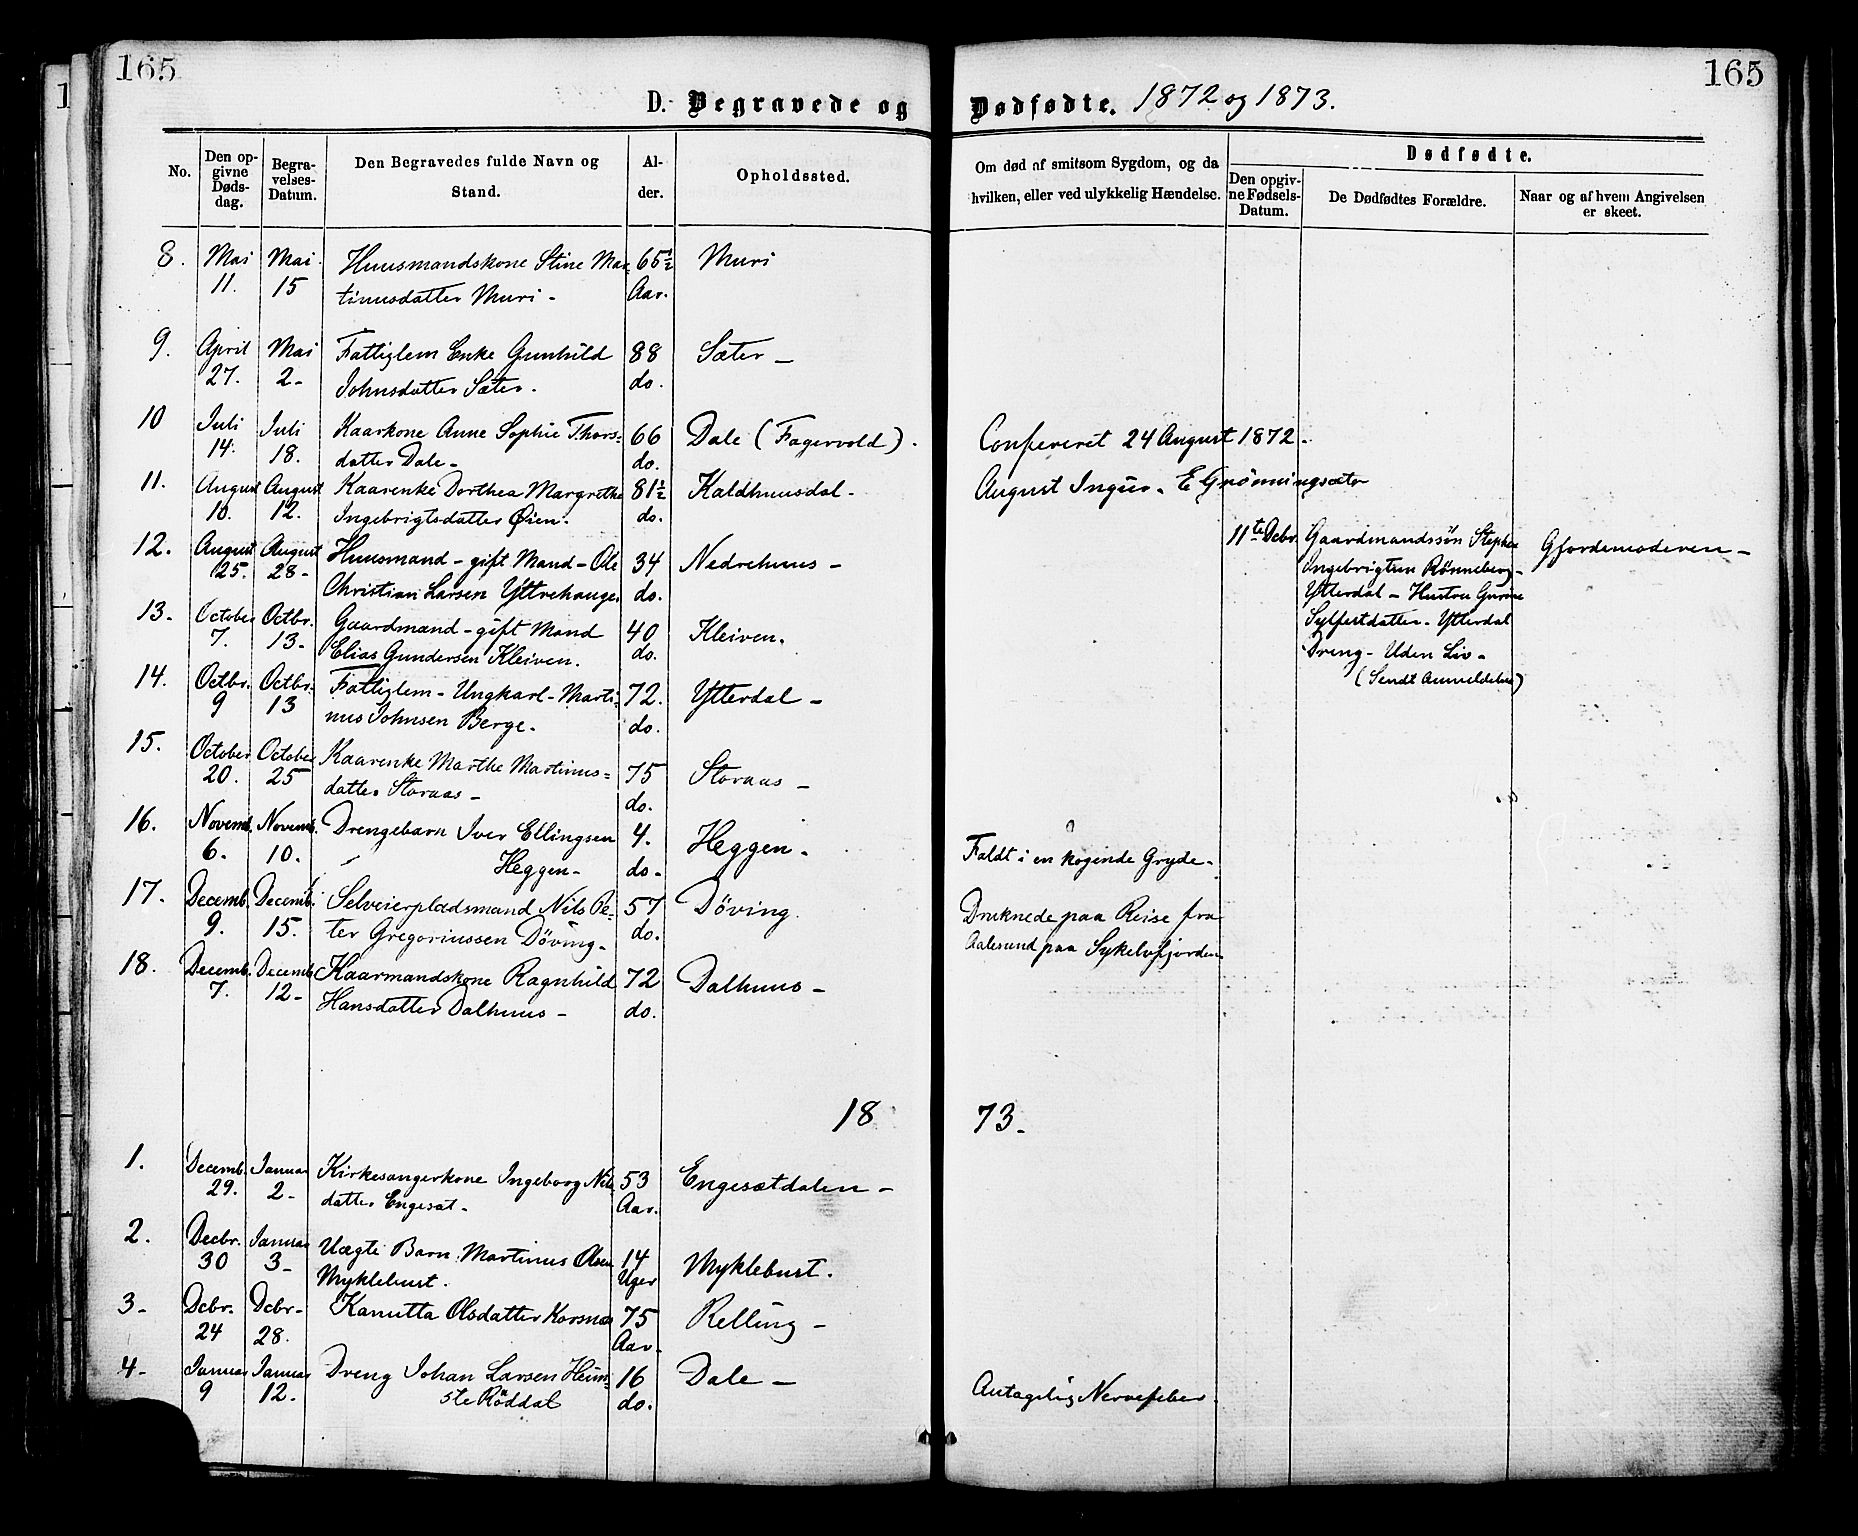 165
165
D. Begravede og Dødfødte. 1872 og 1873.
No.
Den op-
givne
Døds-
dag.
Begra-
velses-
Datum.
Den Begravedes fulde Navn og
Stand.
Al-
der.
Opholdssted.
Om død af smitsom Sygdom, og da
hvilken, eller ved ulykkelig Hændelse.
Dødfødte.
Den opgiv-
ne Fødsels-
Datum.
De Dødfødtes Forældre.
Naar og af hvem Angivelsen
er skeet.
8. Mai Mai Huusmandskone Stine Mar 65½ Muri
11. 15 tinusdatter Muri - Aar.
9. April Mai Fattiglem Enke Gunhild 88 Sæter -
27. 2- Johnsdatter Sæter. do.
10 Juli Juli Kaarkone Anne Sophie Thors= 66 Dale (Fagervold). Confereret 24 August 1872-
14. 18. datter Dale- do.
11. August August Kaarenke Dorthea Margrethe 81½ Kaldhuusdal- August E Grønningsæter
10. 12. Ingebrigtsdatter Øien. do.
12. August August Huusmand - gift Mand - Ole 34 Nedrehuus - 11te Dcbr. Gaardmandssøn Stephen Gjordemoderen -
25. 28- Christian Larsen Yttrehauge. do. Ingebrigtsen Rønneberg-
Ytterdal - Hustru Gurine
13. October Octbr. Gaardmand - gift Mand 40 Kleiven. Sylfestdatter- Ytterdal
7. 13- Elias Gundersen Kleiven. do. Dreng - Uden Liv -
14. Octbr. Octbr. Fattiglem - Ungkarl - Marti= 72. Ytterdal - (Sendt Anmeldelse)
9 13 nus Johnsen Berge. do.
15. October October Kaarenke Marthe Martinus= 75 Storaas -
20. 25 datter Storaas - do.
16. Novemb. Novemb. Drengebarn Iver Ellingsen 4. Heggen - Faldt i en kogende Gryde-
6. 10. Heggen- do-
17. Decemb. Decemb. Selveierpladsmand Nils Pe- 57 Döving. Druknede paa Reise fra
9. 15. ter Gregoriussen Döving- do. Aalesund paa Sykelvfjorden.
18. Decemb. Decemb. Kaarmandskone Ragnhild 72 Dalhuus -
7. 12- Hansdatter Dalhuus - do.
18 73.
1. Decemb. Januar Kirkesangerkone Ingeborg Nils 53 Engesætdalen -
29. 2- datter Engesæt. Aar.
2. Decbr. Januar Uægte Barn Martinus Olsen 14 Myklebust.
30 3- Myklebust. Uger
3- Dcbr. Dcbr- Kanutta Olsdatter Korsnæs 75 Relling -
24 28. Aar.
4- Januar Januar Dreng Johan Larsen Heim= 16 Dale - Antagelig Nervefeber.
9 12. ste Röddal do.